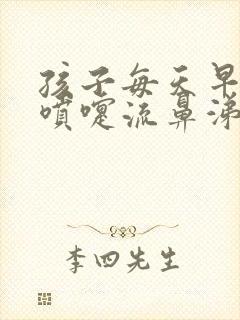 孩子每天早
喷嚏流鼻涕
李四先生